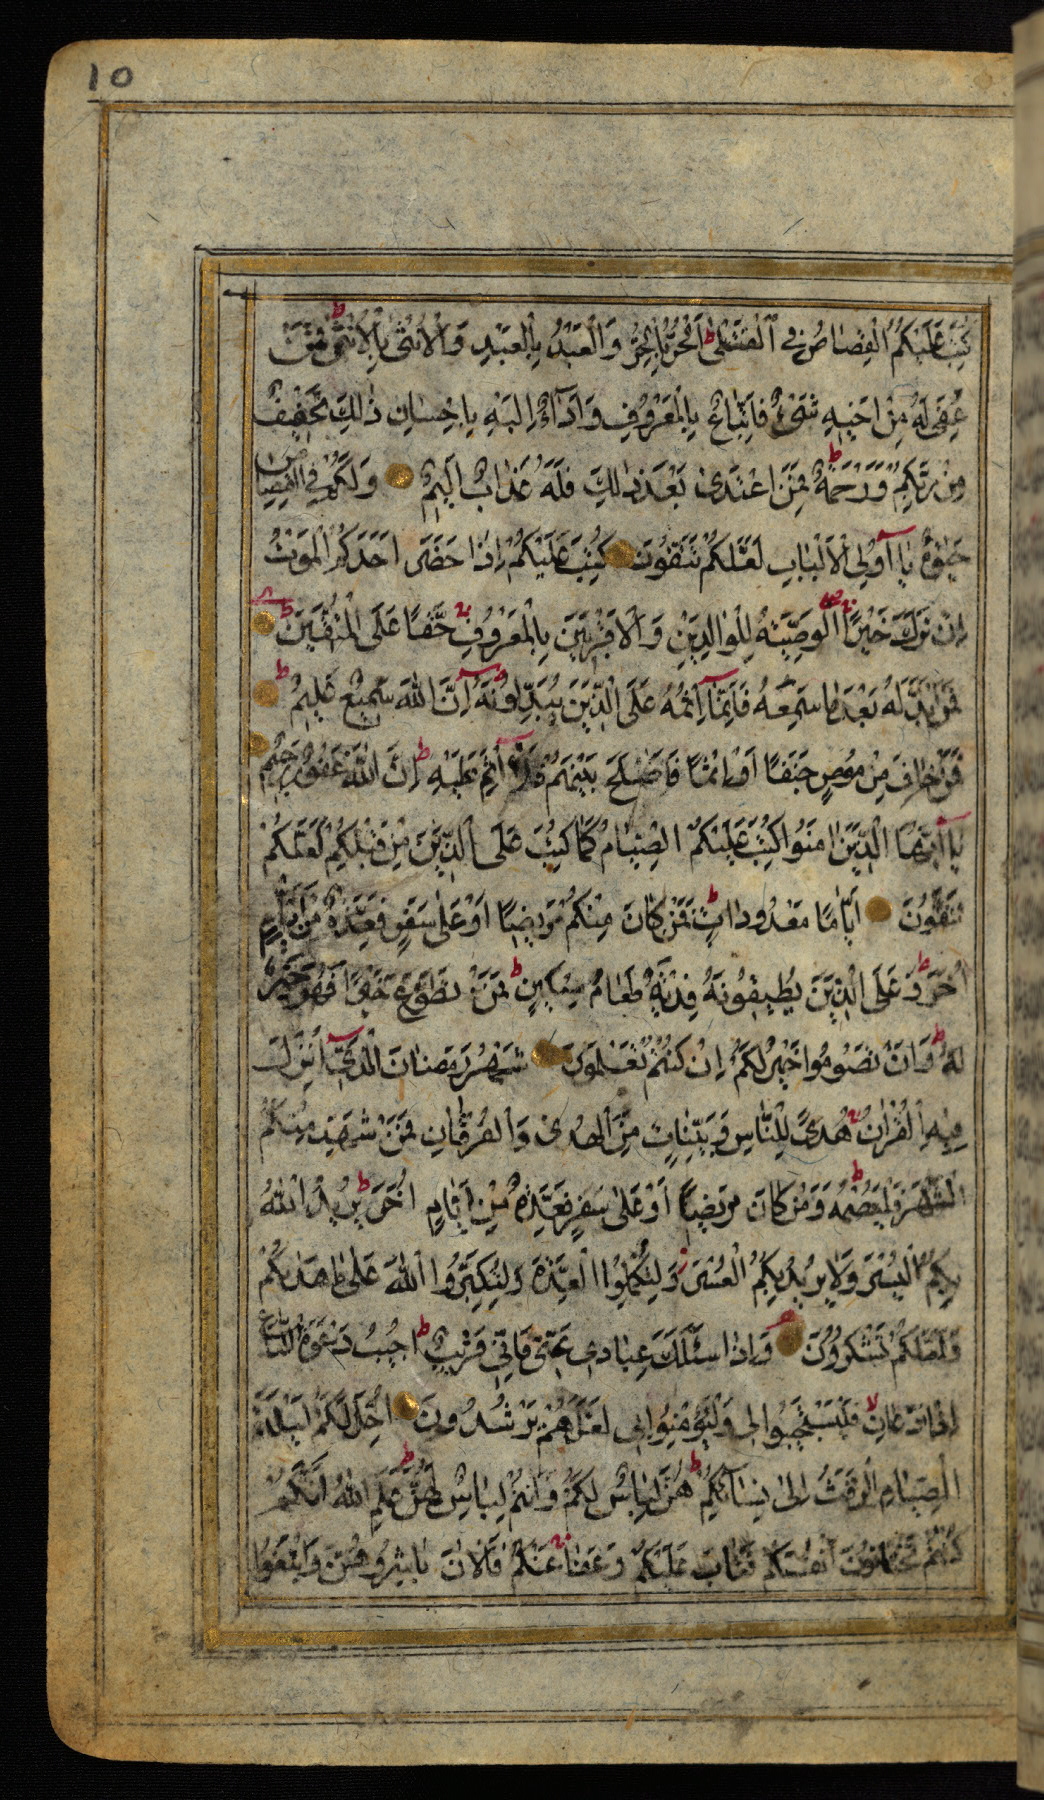 10
كُتِبَ عَلَيْكُمُ الْقِصَاصُ فِي الْقَتْلَىٰ ط اَلْحُرُّ بِالْحُرِّ وَالْعَبْدُ بِالْعَبْدِ وَالْاُنْثٰى بِالْاُنْثٰى ط فَمَنْ
عُفِيَ لَهُ مِنْ اَخِيهِ شَيْءٌ فَاتِّبَاعٌ بِالْمَعْرُوفِ وَاَدَآءٌ اِلَيْهِ بِاِحْسَانٍ ذٰلِكَ تَخْفِيفٌ
مِنْ رَبِّكُمْ وَرَحْمَةٌ ط فَمَنِ اعْتَدٰى بَعْدَ ذٰلِكَ فَلَهُ عَذَابٌ اَلِيمٌ وَلَكُمْ فِي الْقِصَاصِ
حَيٰوةٌ يَا اُولِي الْاَلْبَابِ لَعَلَّكُمْ تَتَّقُونَ كُتِبَ عَلَيْكُمْ اِذَا حَضَرَ اَحَدَكُمُ الْمَوْتُ
اِنْ تَرَكَ خَيْرًا الْوَصِيَّةُ لِلْوَالِدَيْنِ وَالْاَقْرَبِينَ بِالْمَعْرُوفِ حَقًّا عَلَى الْمُتَّقِينَ ط
فَمَنْ بَدَّلَهُ بَعْدَ مَا سَمِعَهُ فَاِنَّمَا اِثْمُهُ عَلَى الَّذِينَ يُبَدِّلُونَهُ ط اِنَّ اللّٰهَ سَمِيعٌ عَلِيمٌ ط
فَمَنْ خَافَ مِنْ مُوصٍ جَنَفًا اَوْ اِثْمًا فَاَصْلَحَ بَيْنَهُمْ فَلَا اِثْمَ عَلَيْهِ ط اِنَّ اللّٰهَ غَفُورٌ رَحِيمٌ
يَا اَيُّهَا الَّذِينَ اٰمَنُوا كُتِبَ عَلَيْكُمُ الصِّيَامُ كَمَا كُتِبَ عَلَى الَّذِينَ مِنْ قَبْلِكُمْ لَعَلَّكُمْ
تَتَّقُونَ اَيَّامًا مَعْدُودَاتٍ ط فَمَنْ كَانَ مِنْكُمْ مَرِيضًا اَوْ عَلَى سَفَرٍ فَعِدَّةٌ مِنْ اَيَّامٍ
اُخَرَ ط وَعَلَى الَّذِينَ يُطِيقُونَهُ فِدْيَةٌ طَعَامُ مِسْكِينٍ ط فَمَنْ تَطَوَّعَ خَيْرًا فَهُوَ خَيْرٌ
لَهُ ط وَاَنْ تَصُومُوا خَيْرٌ لَكُمْ اِنْ كُنْتُمْ تَعْلَمُونَ شَهْرُ رَمَضَانَ الَّذِي اُنْزِلَ
فِيهِ الْقُرْاٰنُ هُدًى لِلنَّاسِ وَبَيِّنَاتٍ مِنَ الْهُدٰى وَالْفُرْقَانِ فَمَنْ شَهِدَ مِنْكُمُ
الشَّهْرَ فَلْيَصُمْهُ ط وَمَنْ كَانَ مَرِيضًا اَوْ عَلَى سَفَرٍ فَعِدَّةٌ مِنْ اَيَّامٍ اُخَرَ ط يُرِيدُ اللّٰهُ
بِكُمُ الْيُسْرَ وَلَا يُرِيدُ بِكُمُ الْعُسْرَ وَلِتُكْمِلُوا الْعِدَّةَ وَلِتُكَبِّرُوا اللّٰهَ عَلٰى مَا هَدٰيكُمْ
وَلَعَلَّكُمْ تَشْكُرُونَ وَاِذَا سَئَلَكَ عِبَادِي عَنِّي فَاِنِّي قَرِيبٌ ط اُجِيبُ دَعْوَةَ الدَّاعِ
اِذَا دَعَانِ لا فَلْيَسْتَجِيبُوا لِي وَلْيُؤْمِنُوا بِي لَعَلَّهُمْ يَرْشُدُونَ اُحِلَّ لَكُمْ لَيْلَةَ
الصِّيَامِ الرَّفَثُ اِلٰى نِسَآئِكُمْ ط هُنَّ لِبَاسٌ لَكُمْ وَاَنْتُمْ لِبَاسٌ لَهُنَّ ط عَلِمَ اللّٰهُ اَنَّكُمْ
كُنْتُمْ تَخْتَانُونَ اَنْفُسَكُمْ فَتَابَ عَلَيْكُمْ وَعَفَا عَنْكُمْ فَالْاٰنَ بَاشِرُوهُنَّ وَابْتَغُوا